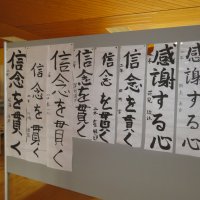 感謝する心
感謝する心
信念を貫く
信念を貫く
信念を貫く
信念を貫く
信念を貫く
信念を貫く